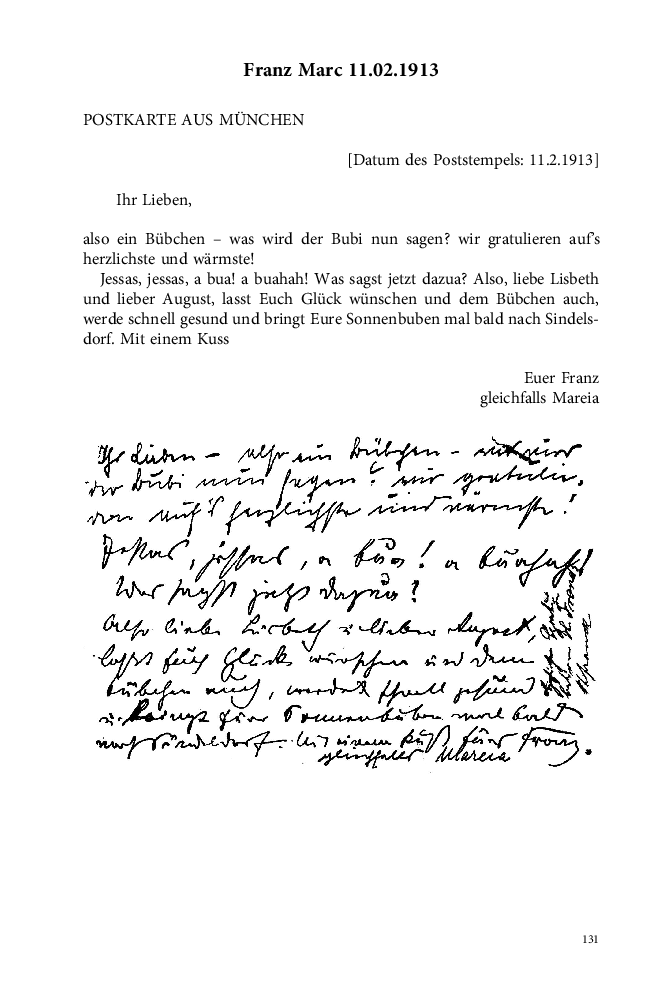 Franz Marc 11.02.1913
POSTKARTE AUS MÜNCHEN
[Datum des Poststempels: 11.2.1913]
Ihr Lieben,
also ein Bübchen – was wird der Bubi nun sagen? wir gratulieren auf's
herzlichste und wärmste!
Jessas, jessas, a bua! a buahah! Was sagst jetzt dazua? Also, liebe Lisbeth
und lieber August, lasst Euch Glück wünschen und dem Bübchen auch,
werde schnell gesund und bringt Eure Sonnenbuben mal bald nach Sindels-
dorf. Mit einem Kuss
Euer Franz
gleichfalls Mareia
Ihr Lieben – also ein Bübchen – was wird
der Bubi nun sagen? wir gratulie-
ren auf's herzlichste und wärmste!
Jessas, jessas, a bua! a buahah!
Was sagst jetzt dazua?
Also liebe Lisbeth u. lieber August,
lasst Euch Glück wünschen und dem
Bübchen auch, werdet schnell gesund
u. bringt Eure Sonnenbuben mal bald
nach Sindelsdorf. Mit einem Kuß Euer Franz.
gleichfalls Mareia
131